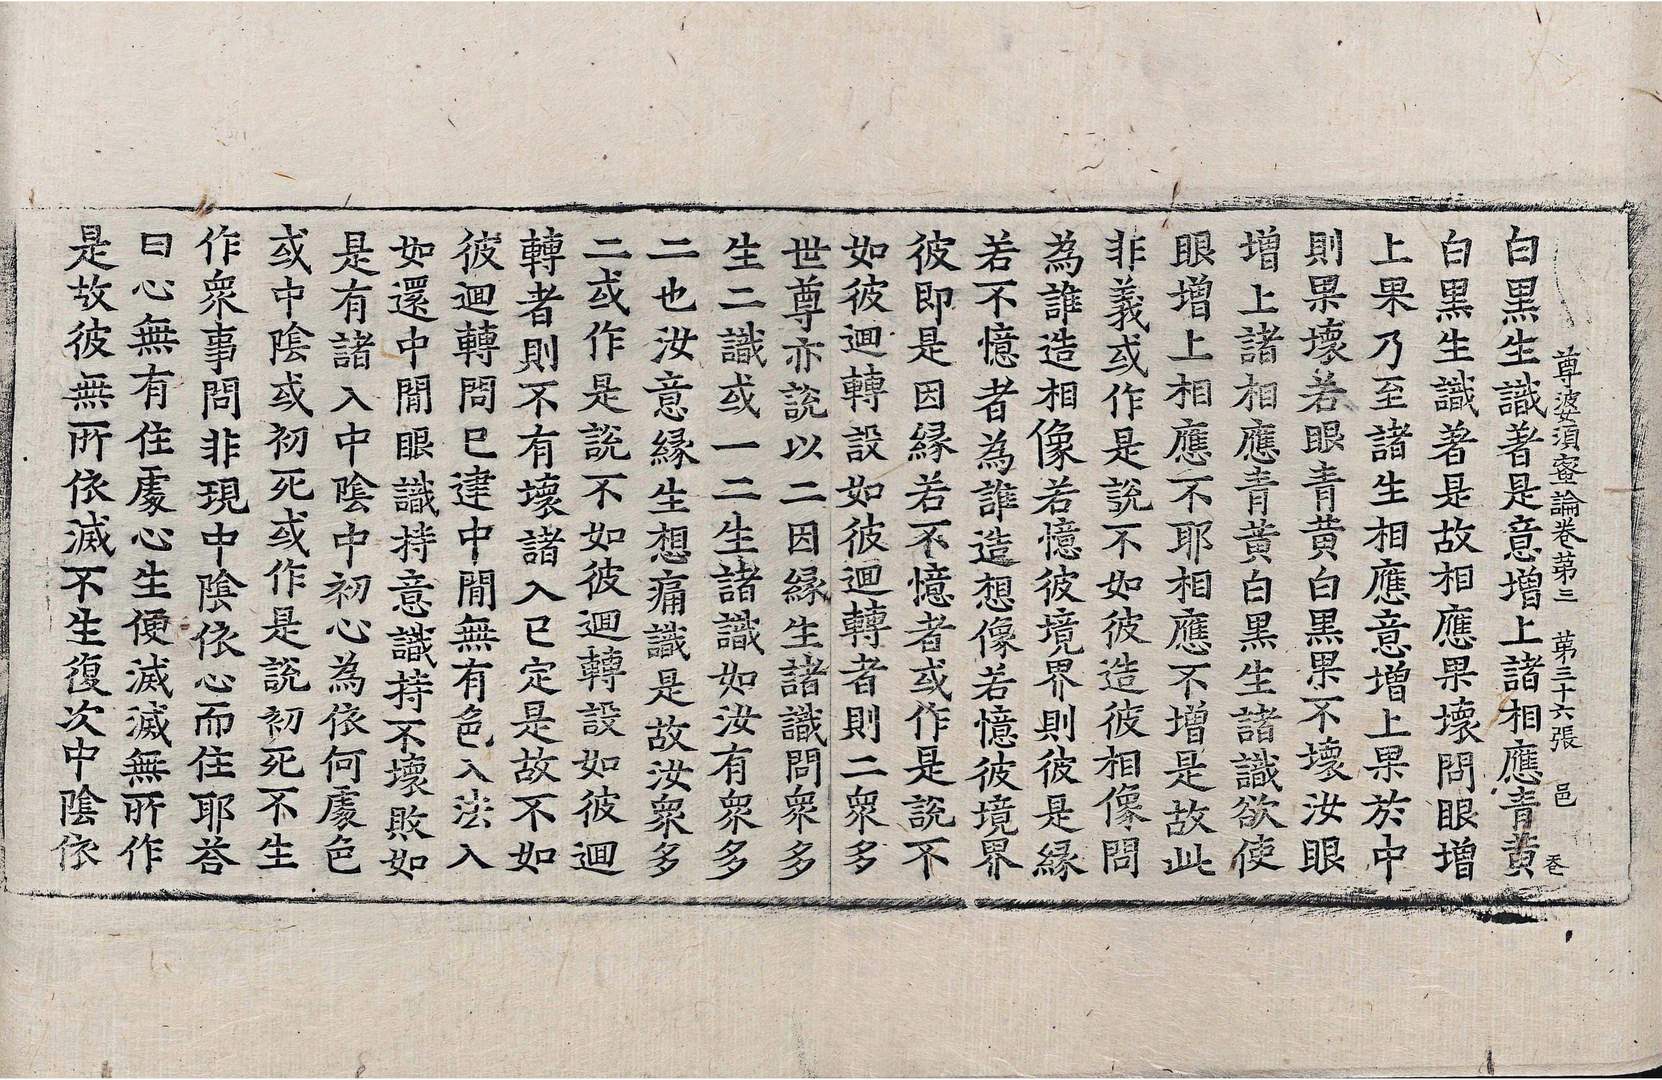 尊婆須蜜論卷第三　第三十六張　邑
白黑生識著是意增上諸相應青黃
白黑生識著是故相應果壞問眼增
上果乃至諸生相應意增上果於中
則果壞若眼青黃白黑果不壞汝眼
增上諸相應青黃白黑生諸識欲使
眼增上相應不耶相應不增是故此
非義或作是說不如彼造彼相像問
為誰造相像若憶彼境界則彼是緣
若不憶者為誰造想像若憶彼境界
彼即是因緣若不憶者或作是說不
如彼迴轉設如彼迴轉者則二衆多
世尊亦說以二因緣生諸識問衆多
生二識或一二生諸識如汝有衆多
二也汝意緣生想痛識是故汝衆多
二或作是說不如彼迴轉設如彼迴
轉者則不有壞諸入已定是故不如
彼迴轉問已逮中間無有色入法入
如還中間眼識持意識持不壞敗如
是有諸入中陰中初心為依何處色
或中陰或初死或作是說初死不生
作衆事問非現中陰依心而住耶荅
曰心無有住處心生便滅滅無所作
是故彼無所依滅不生復次中陰依